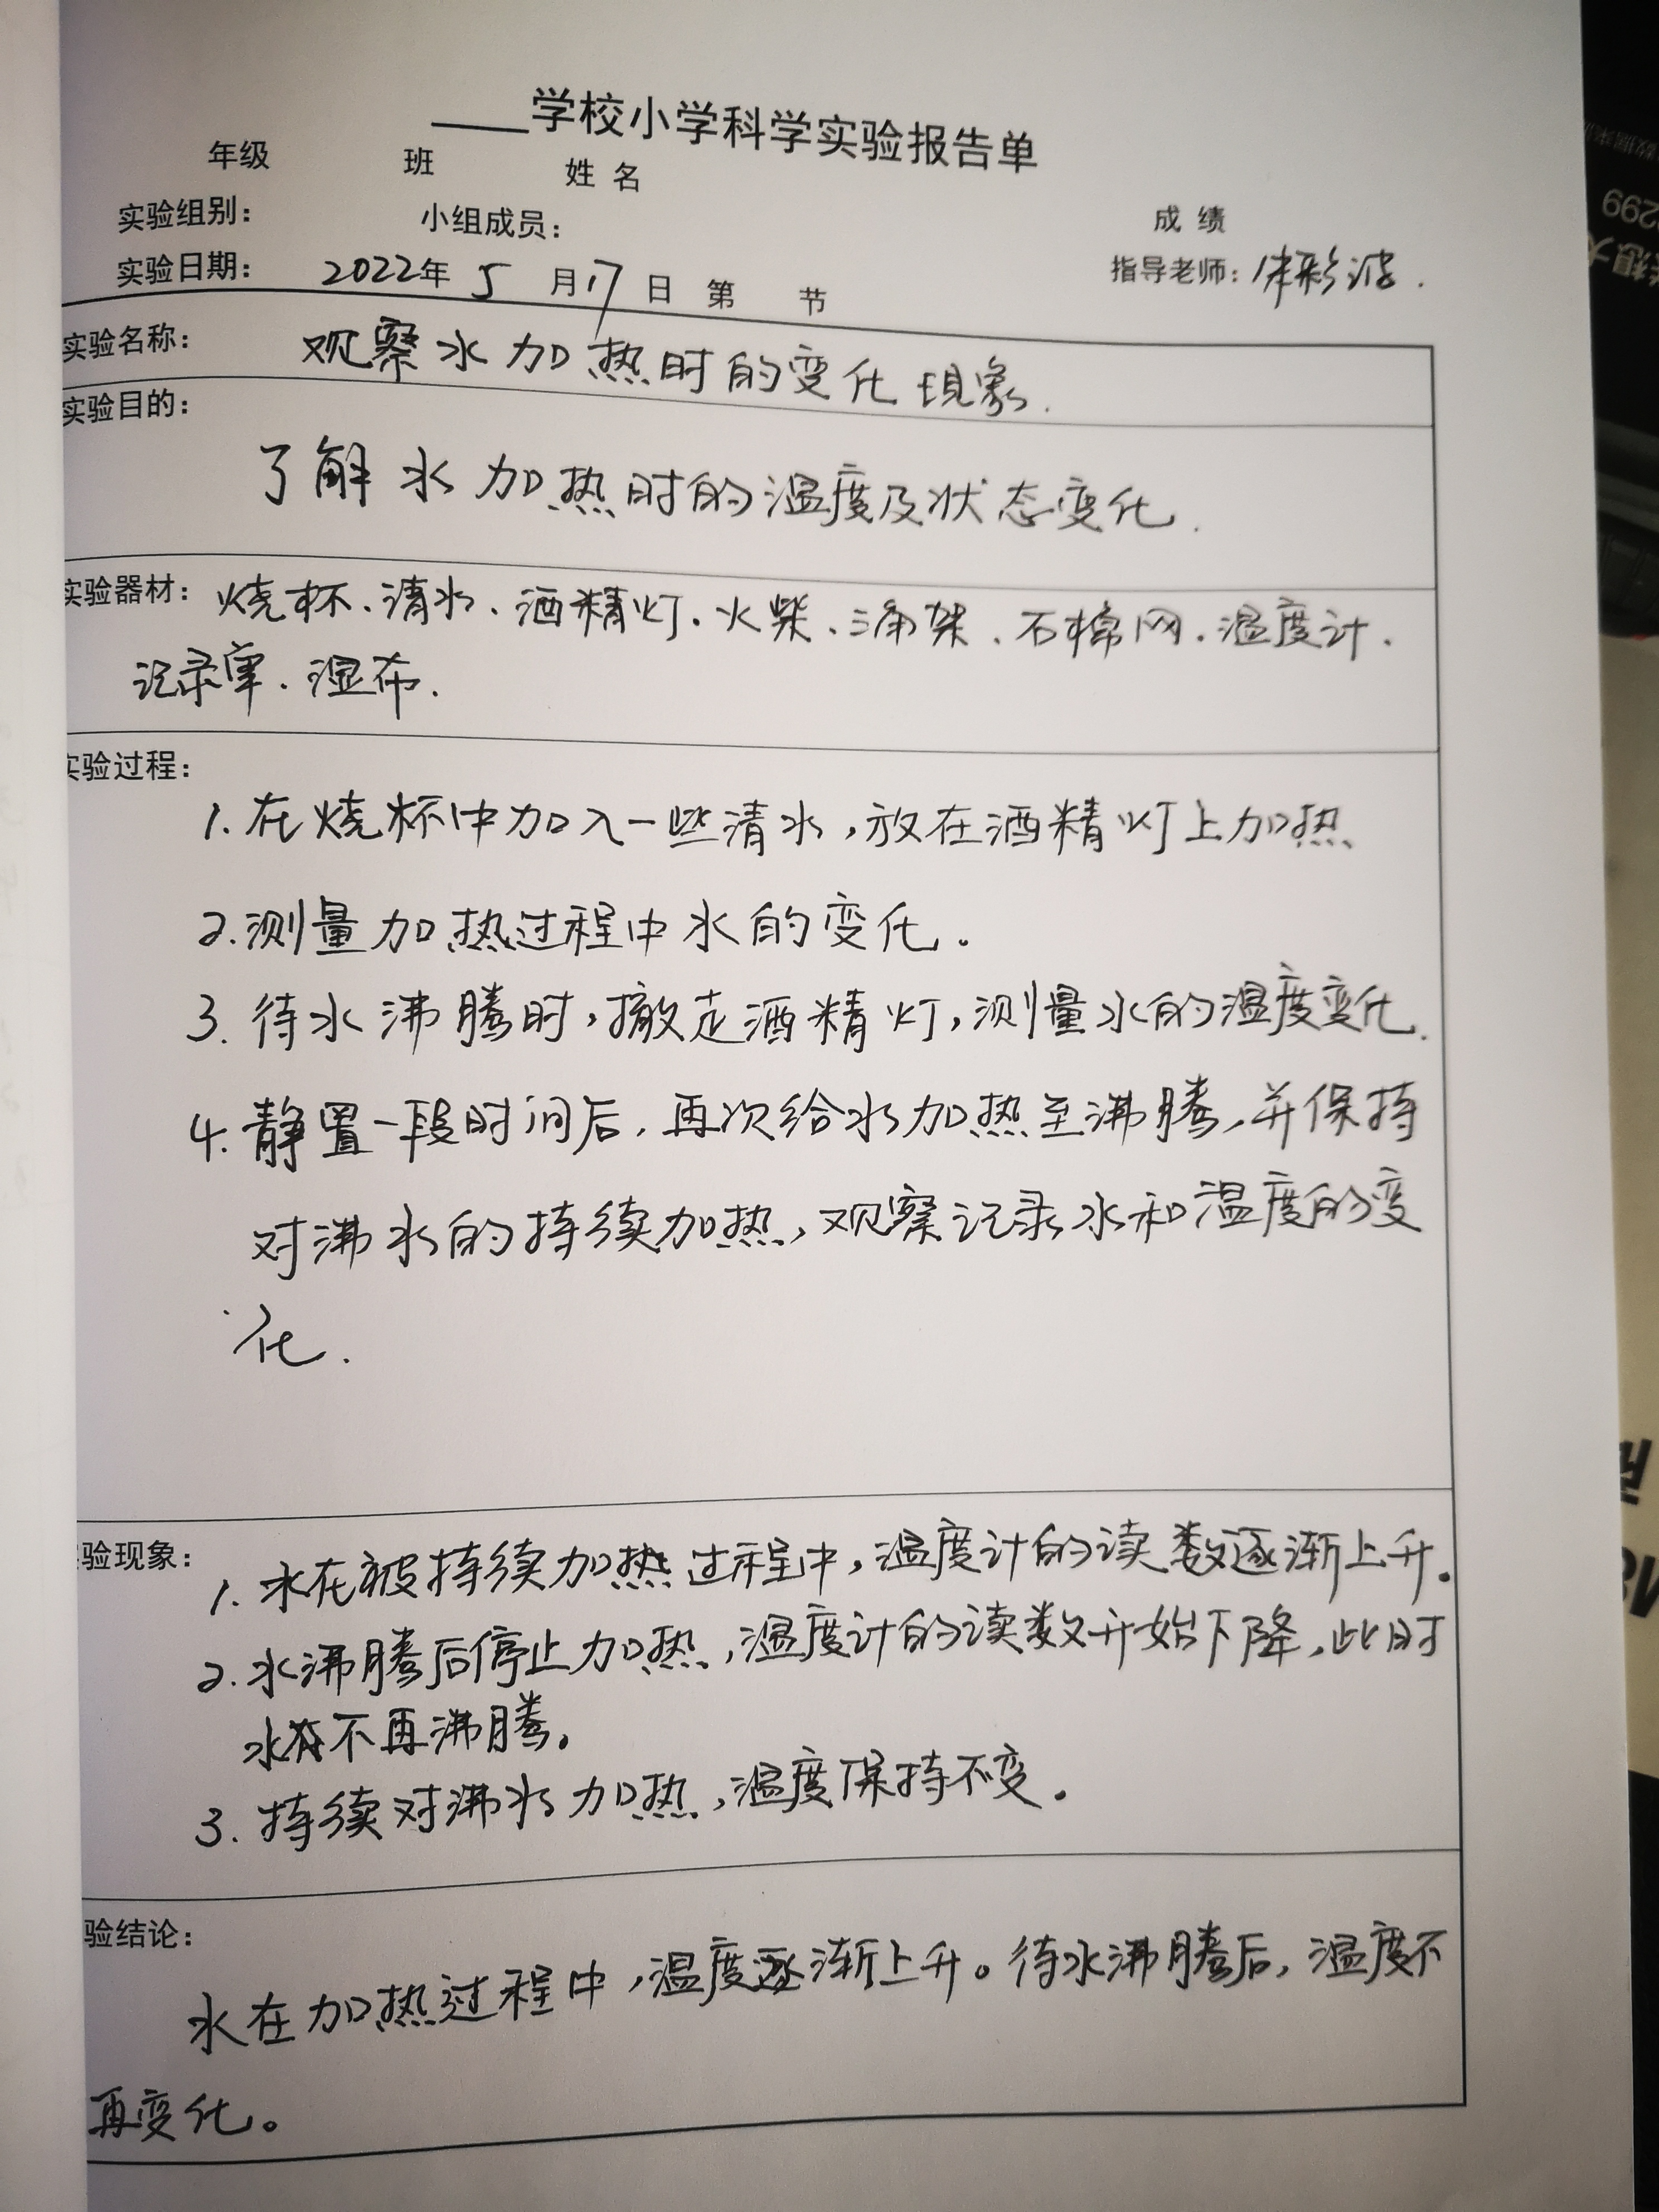 学校小学科学实验报告单
年级 班 姓名
实验组别： 小组成员： 成绩
实验日期： 2022年 5 月17日 第 节 指导老师：
实验名称： 观察水加热时的变化现象.
实验目的：
了解水加热时的温度及状态变化.
实验器材： 烧杯、清水、酒精灯.火柴、三角架、石棉网.温度计.
记录单.湿布.
实验过程：
1.在烧杯中加入一些清水,放在酒精灯上加热
2.测量加热过程中水的变化。
3.待水沸腾时,撤走酒精灯,测量水的温度变化.
4.静置一段时间后,再次给水加热至沸腾,并保持
对沸水的持续加热,观察记录水和温度的变
化.
验现象：
1.水在被持续加热过程中,温度计的读数逐渐上升。
2.水沸腾后停止加热,温度计的读数开始下降,此时
水不再沸腾。
3.持续对沸水加热,温度保持不变。
验结论：
水在加热过程中,温度逐渐上升。待水沸腾后,温度不
再变化。
299